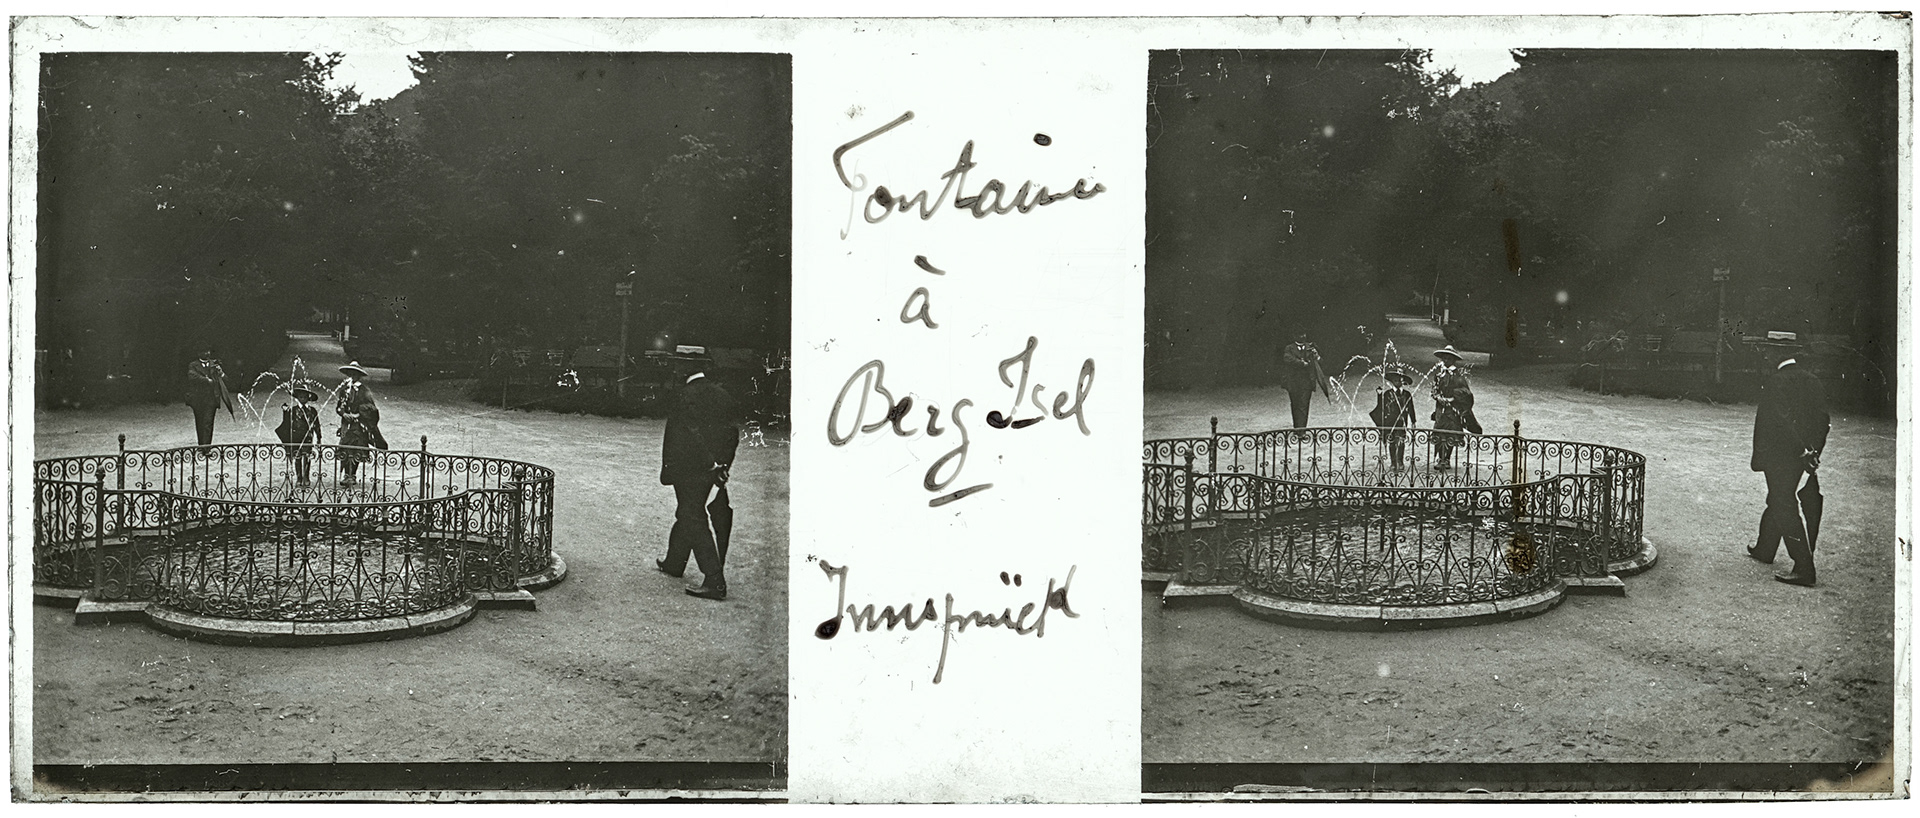 Fontaine
à
Berg Isel
Innsprück